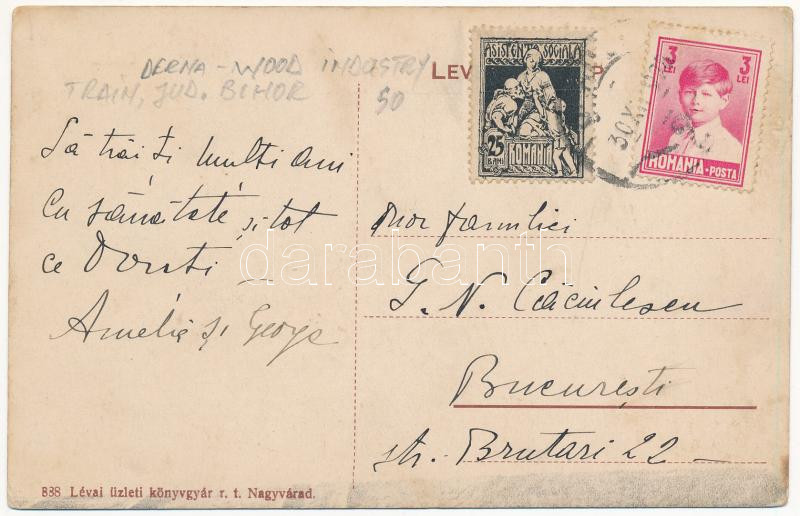 DERNA - WOOD INDUSTRY
TRAIN, JUD. BIHOR
50
LEV
P
ASISTENȚA SOCIALA
25
BANI
ROMANIA
3
LEI
3
LEI
ROMANIA·POSTA
30 X
Să trăiți mulți ani
Cu sănătate și tot
ce Doriti —
Amelie și George
familiei
G. N. Căciulescu
București
str. Brutari 22 —
darabanth
838 Lévai üzleti könyvgyár r. t. Nagyvárad.